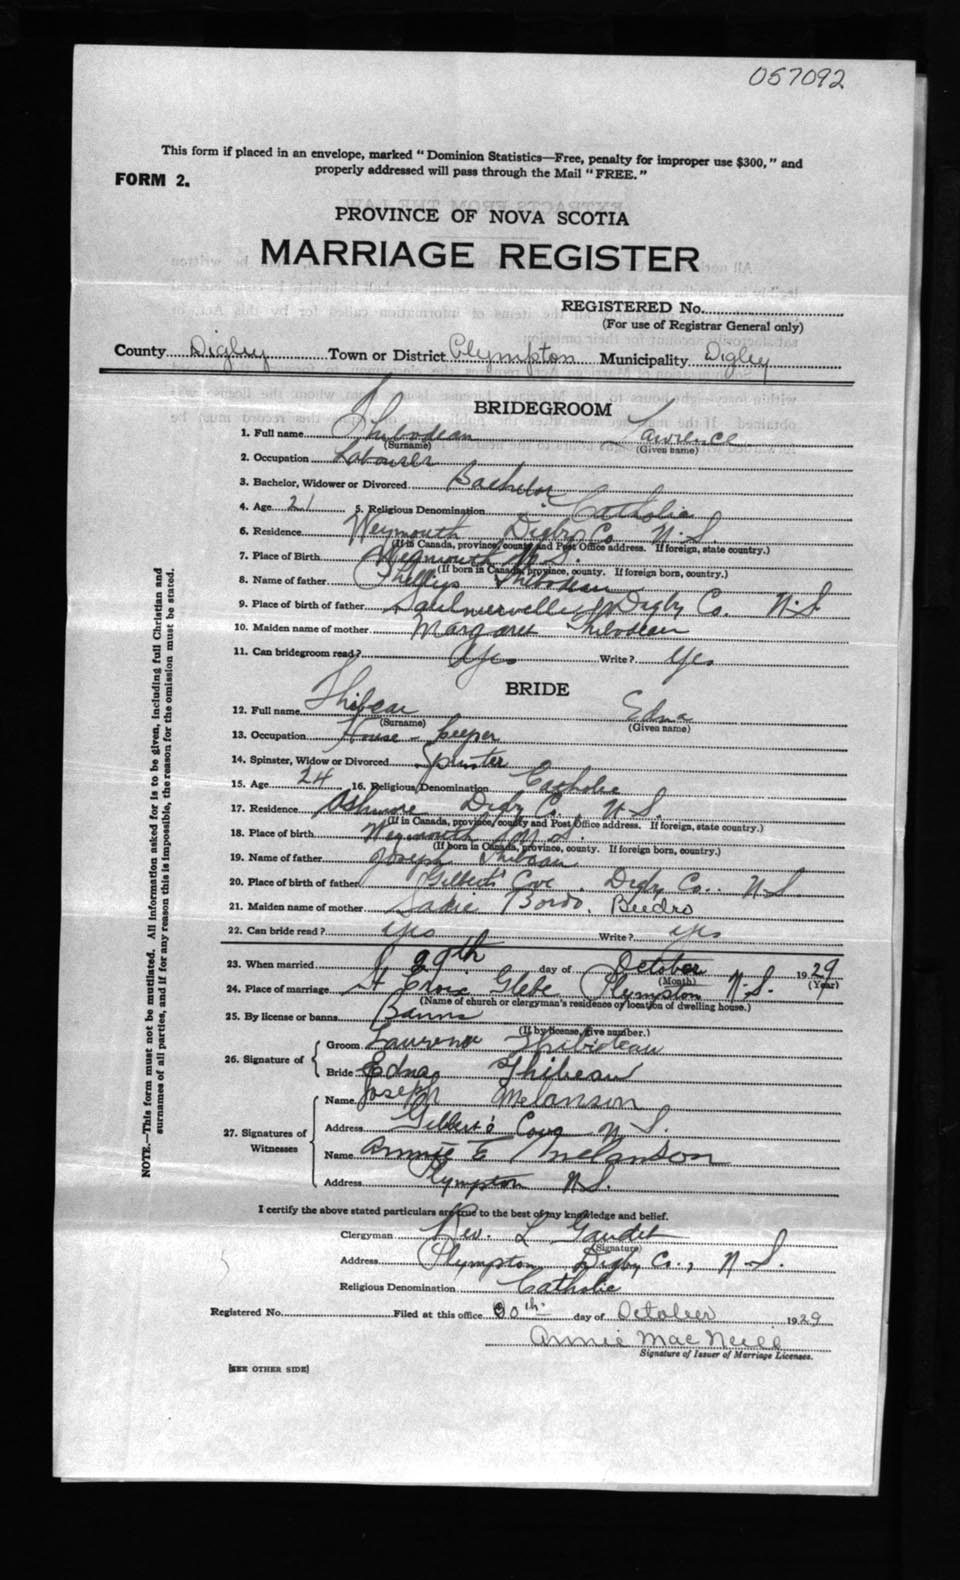 057092
This form if placed in an envelope, marked "Dominion Statistics—Free, penalty for improper use $300," and
properly addressed will pass through the Mail "FREE."
FORM 2.
PROVINCE OF NOVA SCOTIA
MARRIAGE REGISTER
REGISTERED No.
(For use of Registrar General only)
County Digby Town or District Plympton Municipality Digby
BRIDEGROOM
1. Full name Thibodeau Lawrence
(Surname) (Given name)
2. Occupation Labourer
3. Bachelor, Widower or Divorced Bachelor
4. Age 21 5. Religious Denomination Catholic
6. Residence Weymouth Digby Co N.S.
(If in Canada, province, county and Post Office address. If foreign, state country.)
7. Place of Birth Weymouth N.S.
(If born in Canada, province, county. If foreign born, country.)
8. Name of father Thibodeau
9. Place of birth of father Digby Co. N.S.
10. Maiden name of mother Margaret Thibodeau
11. Can bridegroom read? Yes Write? Yes
BRIDE
12. Full name Thibeau Edna
(Surname) (Given name)
13. Occupation House-keeper
14. Spinster, Widow or Divorced Spinster
15. Age 24 16. Religious Denomination Catholic
17. Residence Ashmore Digby Co., N.S.
(If in Canada, province, county and Post Office address. If foreign, state country.)
18. Place of birth Weymouth N.S.
(If born in Canada, province, county. If foreign born, country.)
19. Name of father Joseph Thibeau
20. Place of birth of father Gilberts' Cove, Digby Co.. N.S.
21. Maiden name of mother Sadie
22. Can bride read? yes Write? yes
23. When married 29th day of October 1929
(Month) (Year)
24. Place of marriage St Croix Glebe Plympton N.S.
(Name of church or clergyman's residence or location of dwelling house.)
25. By license or banns Banns
(If by license, give number.)
26. Signature of
Groom Lawrence Thibideau
Bride Edna Thibeau
27. Signatures of Witnesses
Name Joseph Melanson
Address Gilberts Cove N.S.
Name Annie E Melanson
Address Plympton N.S.
I certify the above stated particulars are true to the best of my knowledge and belief.
Clergyman Rev. L Gaudet
(Signature)
Address Plympton Digby Co., N.S.
Religious Denomination Catholic
Registered No. Filed at this office 30th day of October 1929
Annie MacNeill
Signature of Issuer of Marriage Licenses.
[SEE OTHER SIDE]
NOTE.—This form must not be mutilated. All information asked for is to be given, including full Christian and
surnames of all parties, and if for any reason this is impossible, the reason for the omission must be stated.